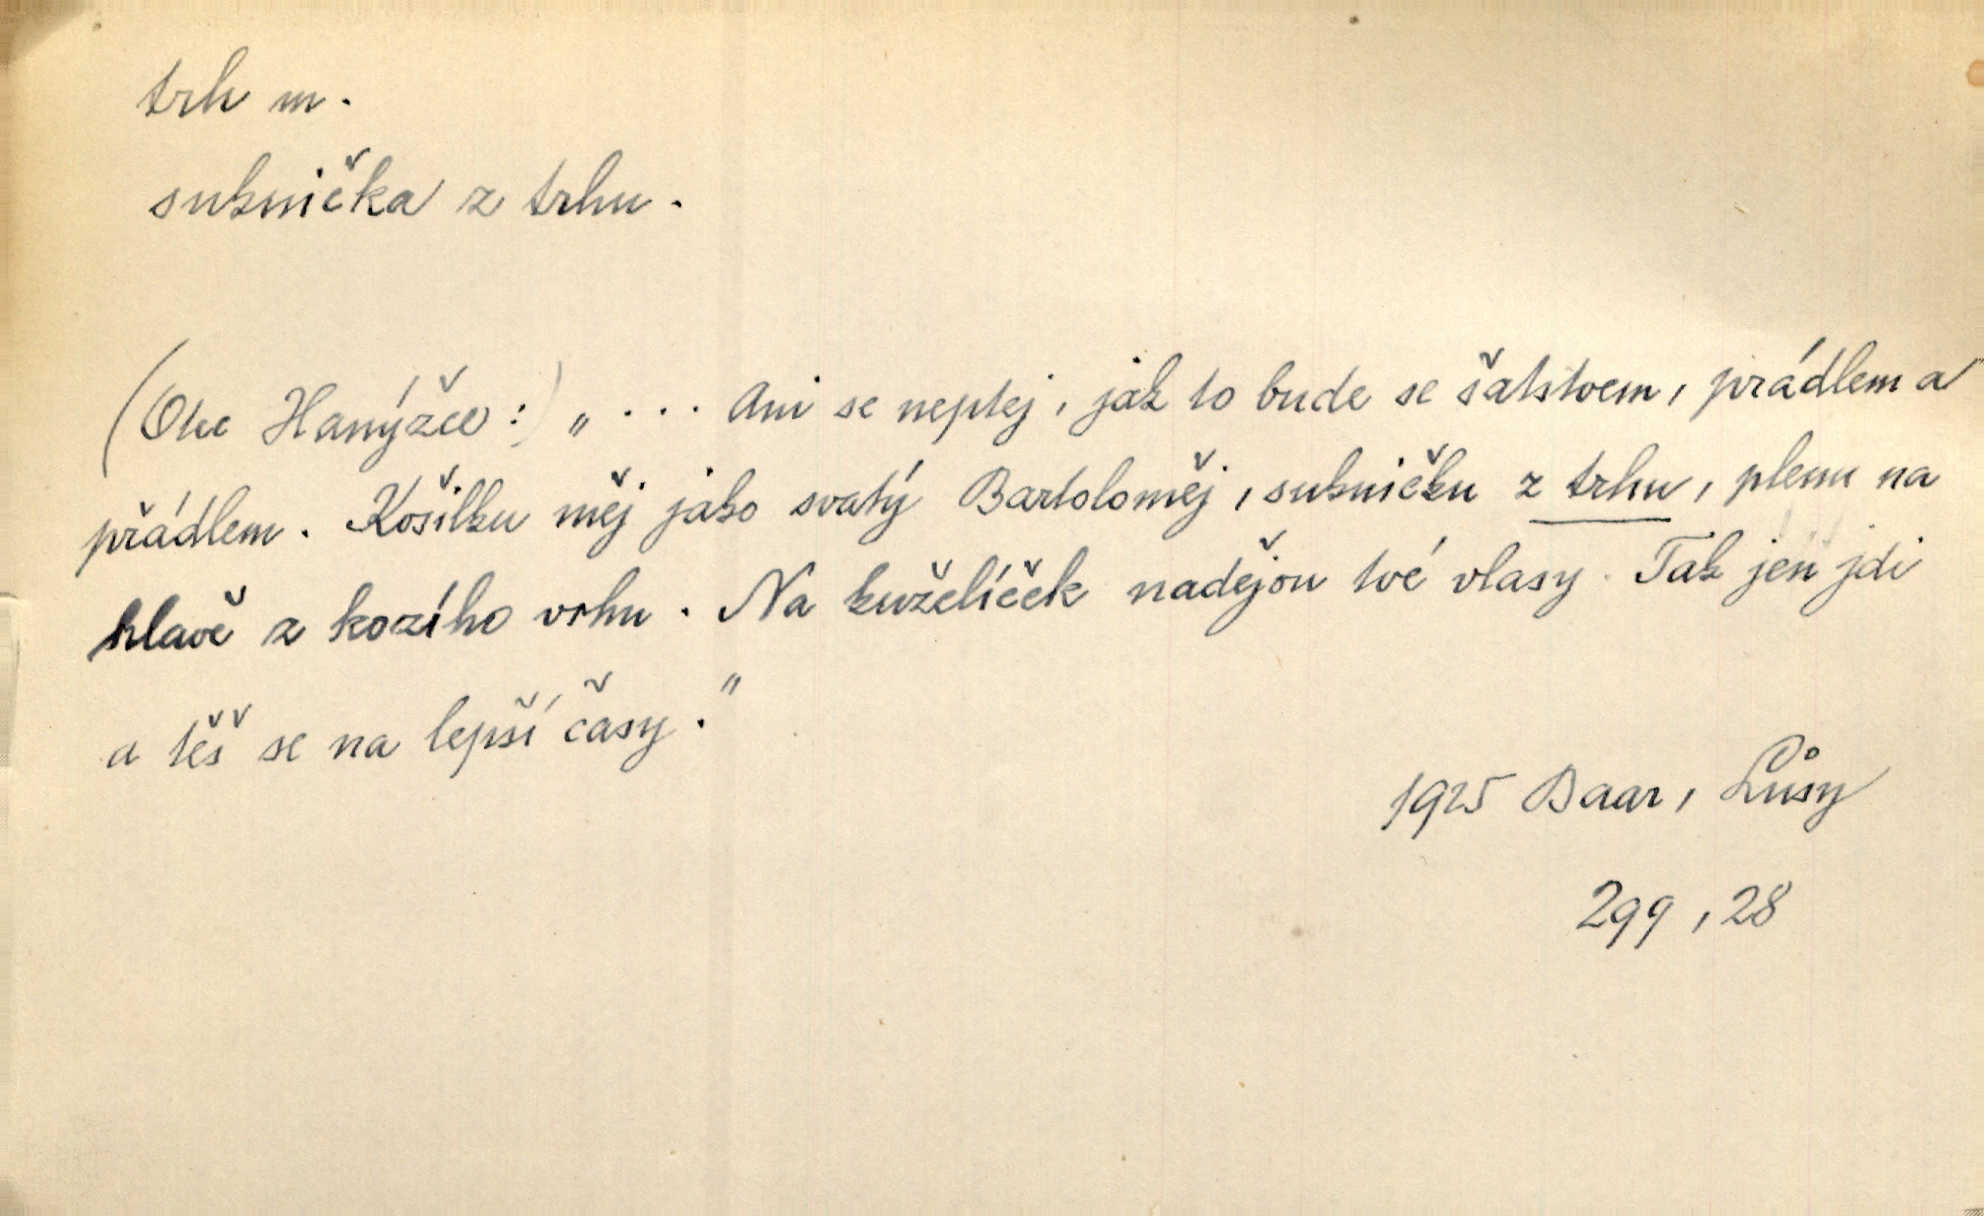 trh m.
suknička z trhu.
(Otec Hanýžce :) „ . . . Ani se neptej, jak to bude se šatstvem, prádlem a
přádlem. Košilku měj jako svatý Bartoloměj, sukničku z trhu, plenu na
hlavě z kozího vrhu. Na kuželíček nadějou tvé vlasy. Tak jen jdi
a těš se na lepší časy."
1925 Baar, Lůsy
299, 28